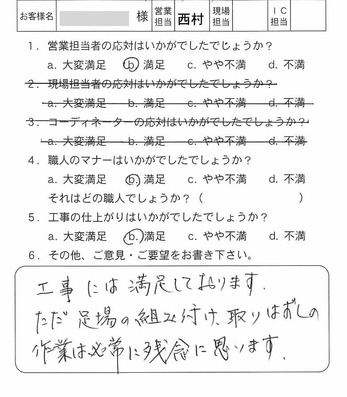 お客様名 様 営業担当 西村 現場担当 IC担当
1. 営業担当者の応対はいかがでしたでしょうか?
a. 大変満足 b. 満足 c. やや不満 d. 不満
2. 現場担当者の応対はいかがでしたでしょうか?
a. 大変満足 b. 満足 c. やや不満 d. 不満
3. コーディネーターの応対はいかがでしたでしょうか?
a. 大変満足 b. 満足 c. やや不満 d. 不満
4. 職人のマナーはいかがでしたでしょうか?
a. 大変満足 b. 満足 c. やや不満 d. 不満
それはどの職人でしょうか?( )
5. 工事の仕上がりはいかがでしたでしょうか?
a. 大変満足 b. 満足 c. やや不満 d. 不満
6. その他、ご意見・ご要望をお書き下さい。
工事には満足しております.
ただ足場の組み付け、取りはずしの
作業は必常に残念に思います.